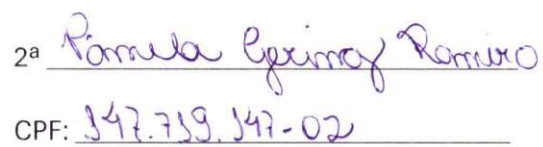 2ª Pâmela Gering Ramiro
CPF: 147.739.147-02